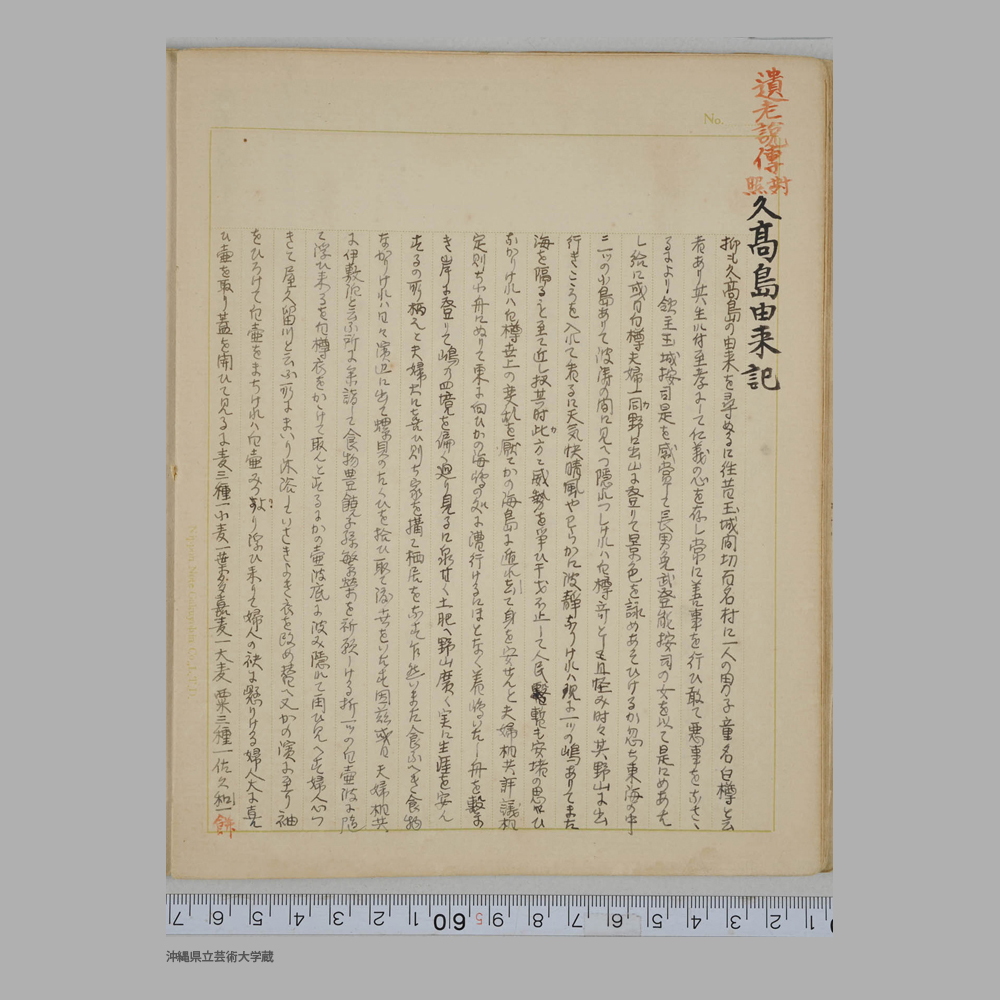 遺老説傳
對照
久髙島由来記
抑も久髙島の由来を尋ぬるに往昔玉城間切百名村に一人の男子童名白樽と云
者あり其生れ付至孝にして仁義の心を存し常に善事を行ひ敢て悪事をなさゝ
るによりて玉城按司是を感賞して長男免武登能按司の女を以て是にめあた
し給に或日白樽夫婦一同野に出山に登りて景色を詠めあそひけるか忽ち東海の中
に一ツの小島ありて波濤の間に見へつ隠れつしけれハ白樽奇とし且怪み時々其野山に出
行きこゝろを入れて看るに天気快晴風やわらかに波静なりけれハ現に一ツの嶋ありてまた
海を隔ること至て近し扨其時此方にて威勢を争ひ干戈不止して人民暫も安堵の思ひ
なかりけれハ白樽世上の乱を厭てかの海島に遁れ去て身を安せんと夫婦相共評議相
定則ち小舟にのりて東に向ひかの海嶋に漕行けるにほとなく着嶋いたし舟を繋
き岸に登りて嶋の四境を徧く廻り見るに泉甘く土肥へ野山廣く実に生涯を安ん
するの所柄と夫婦大に喜ひ則ち家を搆て栖居をなす然いまた食ふへき食物
なかりけれハ日々濱辺に出て螺貝のたくひを拾ひ取て渡世をいたす因茲或日夫婦相共
に伊敷泊と云ふ所に参詣して食物豊饒子孫繁栄を祈願しける折一ツの白壷波に隨
て浮ひ来る白樽衣をかゝけて取んとするにかの壷波底に沈み隠れて再ひ見へす婦人心つ
きて屋久留川と云ふ所にまいり沐浴していさきよき衣を改め着へ又かの濱に至り袖
をひろけて白壷をまちけれハ白壷みつより浮ひ来りて婦人の袂に懸りける婦人大に喜ん
ひ壷を取り蓋を開ひて見るに麦三種一小麦一葉多嘉麦一大麦 粟三種一佐久和一餅
No.
沖縄県立芸術大学蔵